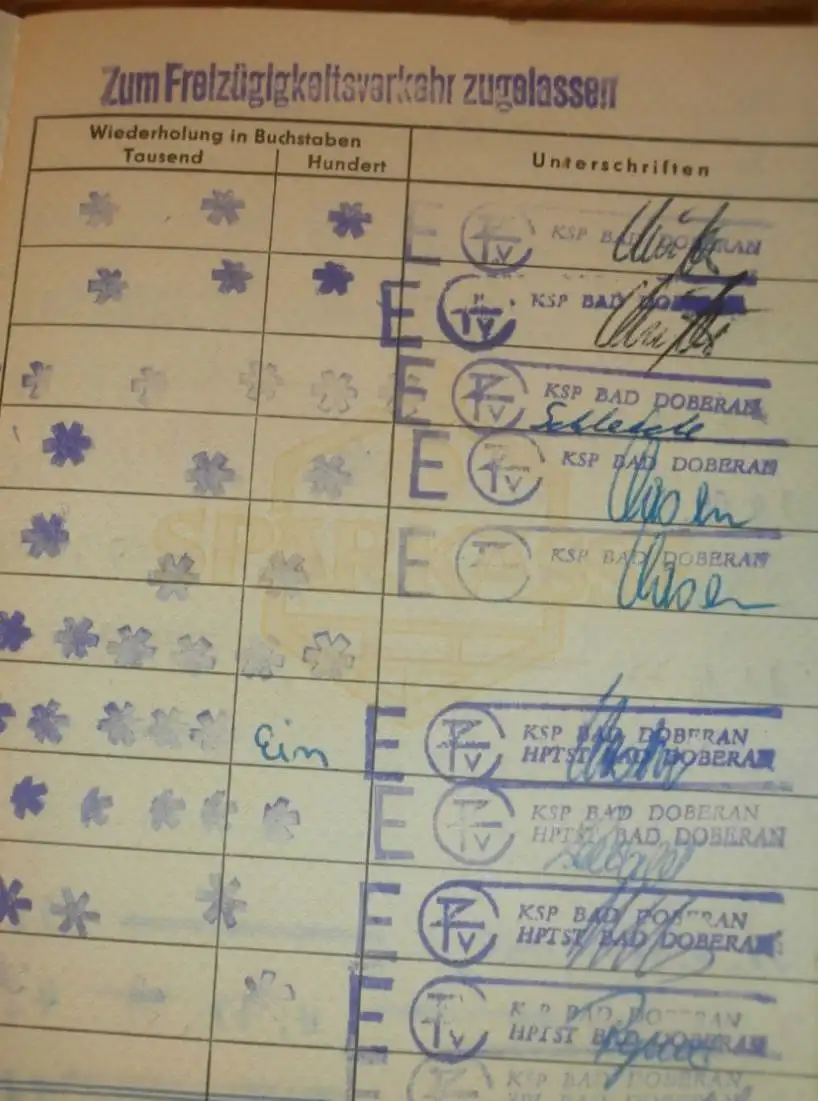 Zum Freizügigkeitsverkehr zugelassen
Wiederholung in Buchstaben
Tausend Hundert Unterschriften
E KSP BAD DOBERAN
E KSP BAD DOBERAN
E KSP BAD DOBERAN
E KSP BAD DOBERAN
E KSP BAD DOBERAN
Ein E KSP BAD DOBERAN
HPTST BAD DOBERAN
E KSP BAD DOBERAN
HPTST BAD DOBERAN
E KSP BAD DOBERAN
HPTST BAD DOBERAN
E KSP BAD DOBERAN
HPTST BAD DOBERAN
KSP BAD DOBERAN